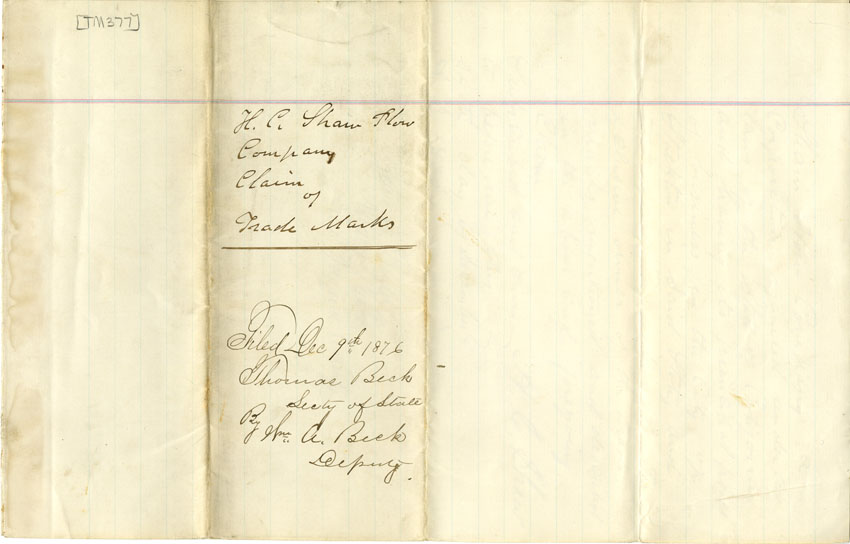 [TM377]
H. C. Shaw Plow
Company
Claim
of
Trade Marks
Filed Dec 9th 1876
Thomas Beck
Secty of State
By Wm. A. Beck
Deputy.